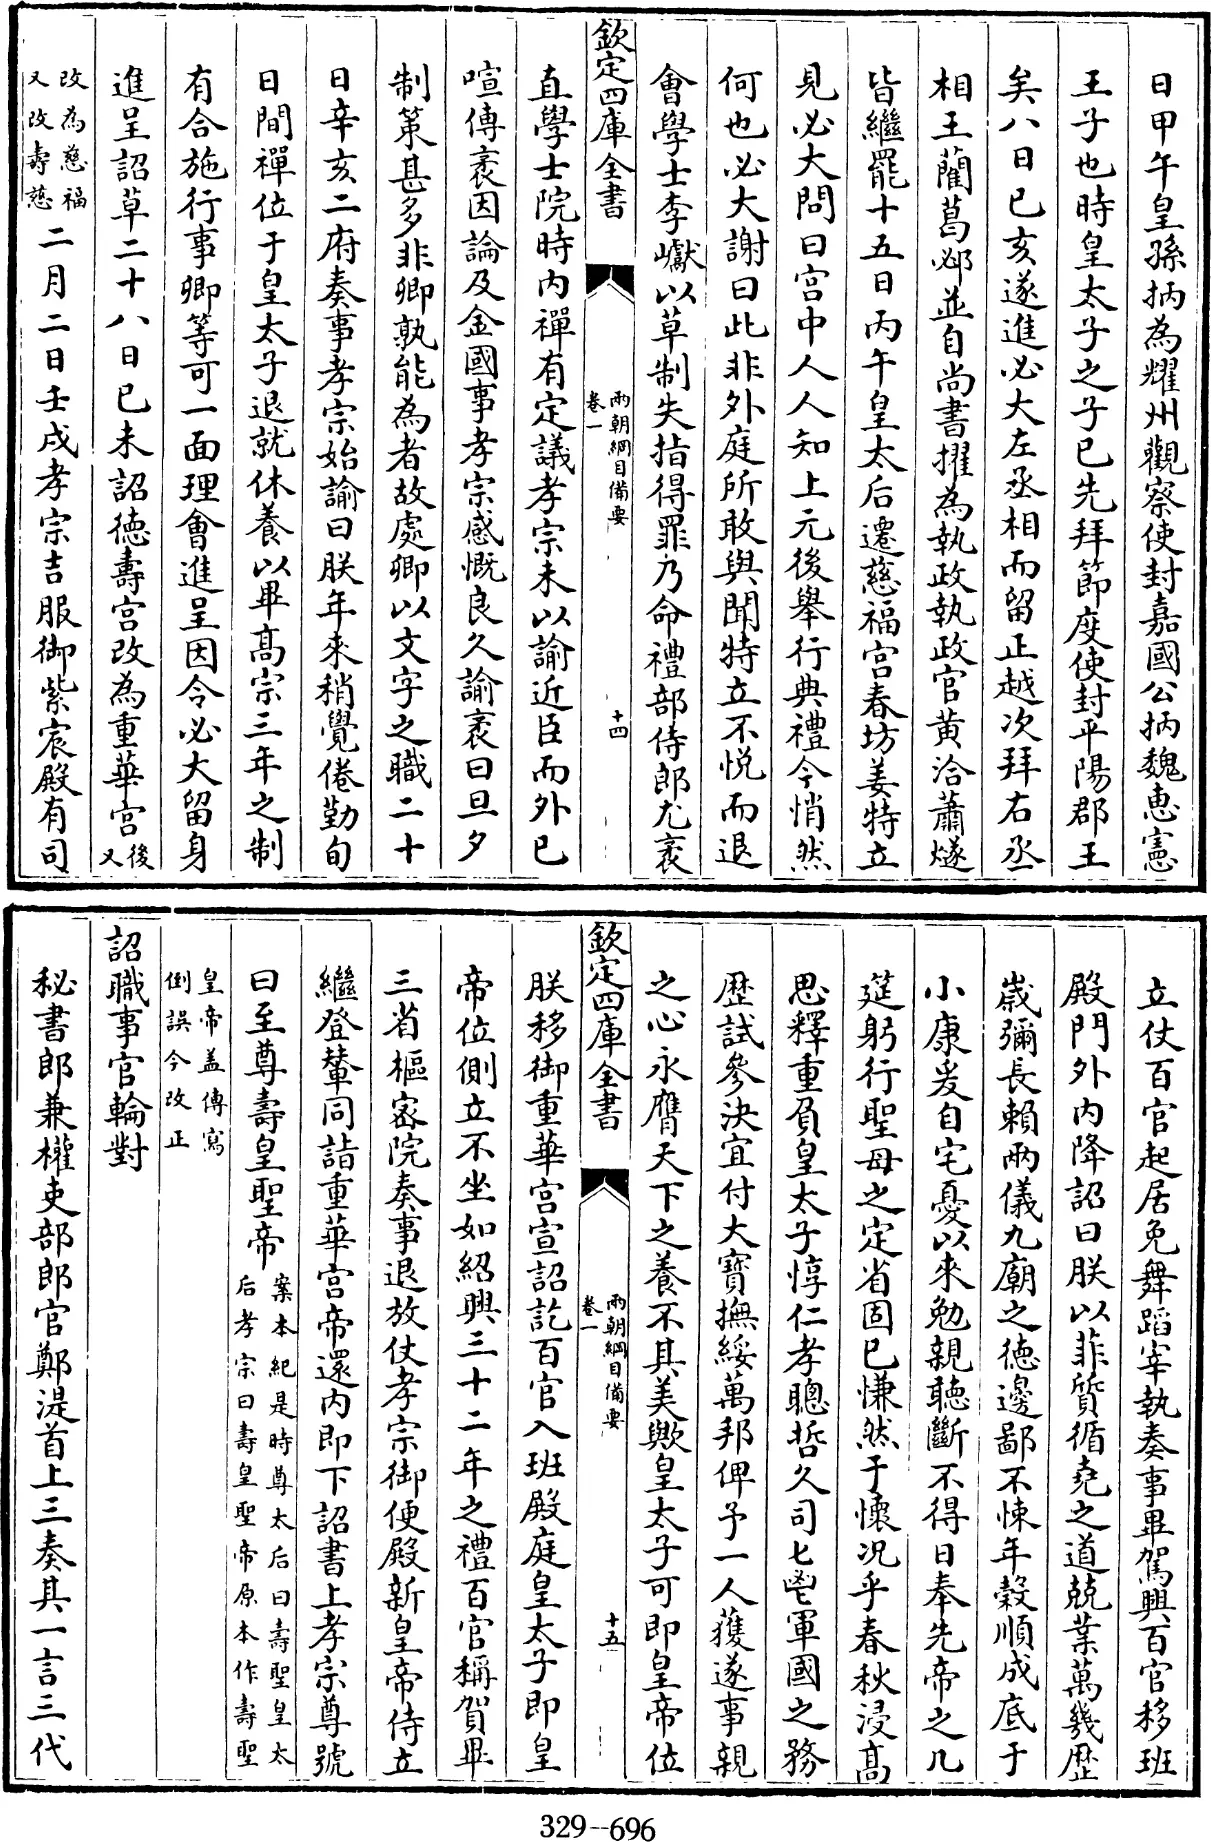 日甲午皇孫抦為耀州觀察使封嘉國公抦魏惠憲
王子也時皇太子之子已先拜節度使封平陽郡王
矣八日已亥遂進必大左丞相而留正越次拜右丞
相王藺葛邲並自尚書擢為執政執政官黄洽蕭燧
皆繼罷十五日丙午皇太后遷慈福宫春坊姜特立
見必大問曰宫中人人知上元後舉行典禮今悄然
何也必大謝曰此非外庭所敢與聞特立不悦而退
會學士李巘以草制失指得罪乃命禮部侍郎尤袤
欽定四庫全書
兩朝綱目備要
卷一
十四
直學士院時内禪有定議孝宗未以諭近臣而外已
喧傳袤因論及金國事孝宗感慨良久諭袤曰旦夕
制策甚多非卿孰能為者故處卿以文字之職二十
日辛亥二府奏事孝宗始諭曰朕年來稍覺倦勤旬
日間禪位于皇太子退就休養以畢髙宗三年之制
有合施行事卿等可一面理會進呈因令必大留身
進呈詔草二十八日已未詔徳壽宫改為重華宫後又
改為慈福又改壽慈二月二日壬戌孝宗吉服御紫宸殿有司
立仗百官起居免舞蹈宰執奏事畢駕興百官移班
殿門外内降詔曰朕以菲質循堯之道兢業萬幾歴
歲彌長賴兩儀九廟之徳邊鄙不悚年穀順成底于
小康爰自宅憂以來勉親聴斷不得日奉先帝之几
筵躬行聖母之定省固已慊然于懐况乎春秋浸髙
思釋重負皇太子惇仁孝聰哲久司匕鬯軍國之務
歴試參決宜付大寳撫綏萬邦俾予一人獲遂事親
之心永膺天下之養不其美歟皇太子可即皇帝位
欽定四庫全書
兩朝綱目備要
卷一
十五
朕移御重華宫宣詔訖百官入班殿庭皇太子即皇
帝位側立不坐如紹興三十二年之禮百官稱賀畢
三省樞宻院奏事退放仗孝宗御便殿新皇帝侍立
繼登輦同詣重華宫帝還内即下詔書上孝宗尊號
曰至尊壽皇聖帝案本紀是時尊太后曰壽聖皇太后孝宗曰壽皇聖帝原本作壽聖
皇帝盖傳寫倒誤今改正
詔職事官輪對
秘書郎兼權吏部郎官鄭湜首上三奏其一言三代
329--696